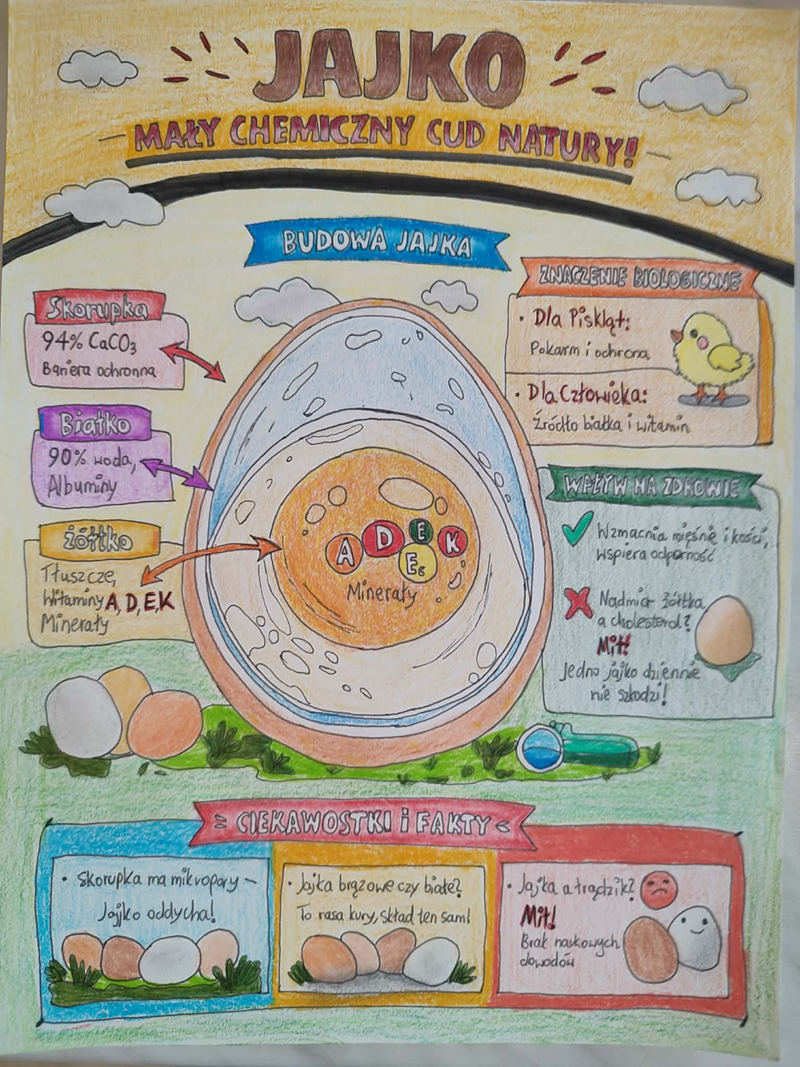 JAJKO
MAŁY CHEMICZNY CUD NATURY!
BUDOWA JAJKA
Skorupka
94% CaCO₃
Bariera ochronna
Białko
90% woda,
Albuminy
Żółtko
Tłuszcze,
Witaminy A, D, E, K
Minerały
A D E K
E
Minerały
ZNACZENIE BIOLOGICZNE
• Dla Piskląt:
Pokarm i ochrona
• Dla Człowieka:
Źródło białka i witamin
WPŁYW NA ZDROWIE
Wzmacnia mięśnie i kości,
wspiera odporność
Nadmiar żółtka,
a cholesterol?
Mit!
Jedno jajko dziennie
nie szkodzi!
CIEKAWOSTKI i FAKTY
• Skorupka ma mikropory –
Jajjko oddycha!
• Jajka brązowe czy białe?
To rasa kury, skład ten sam!
• Jajka a trądzik?
Mit!
Brak naukowych
dowodów